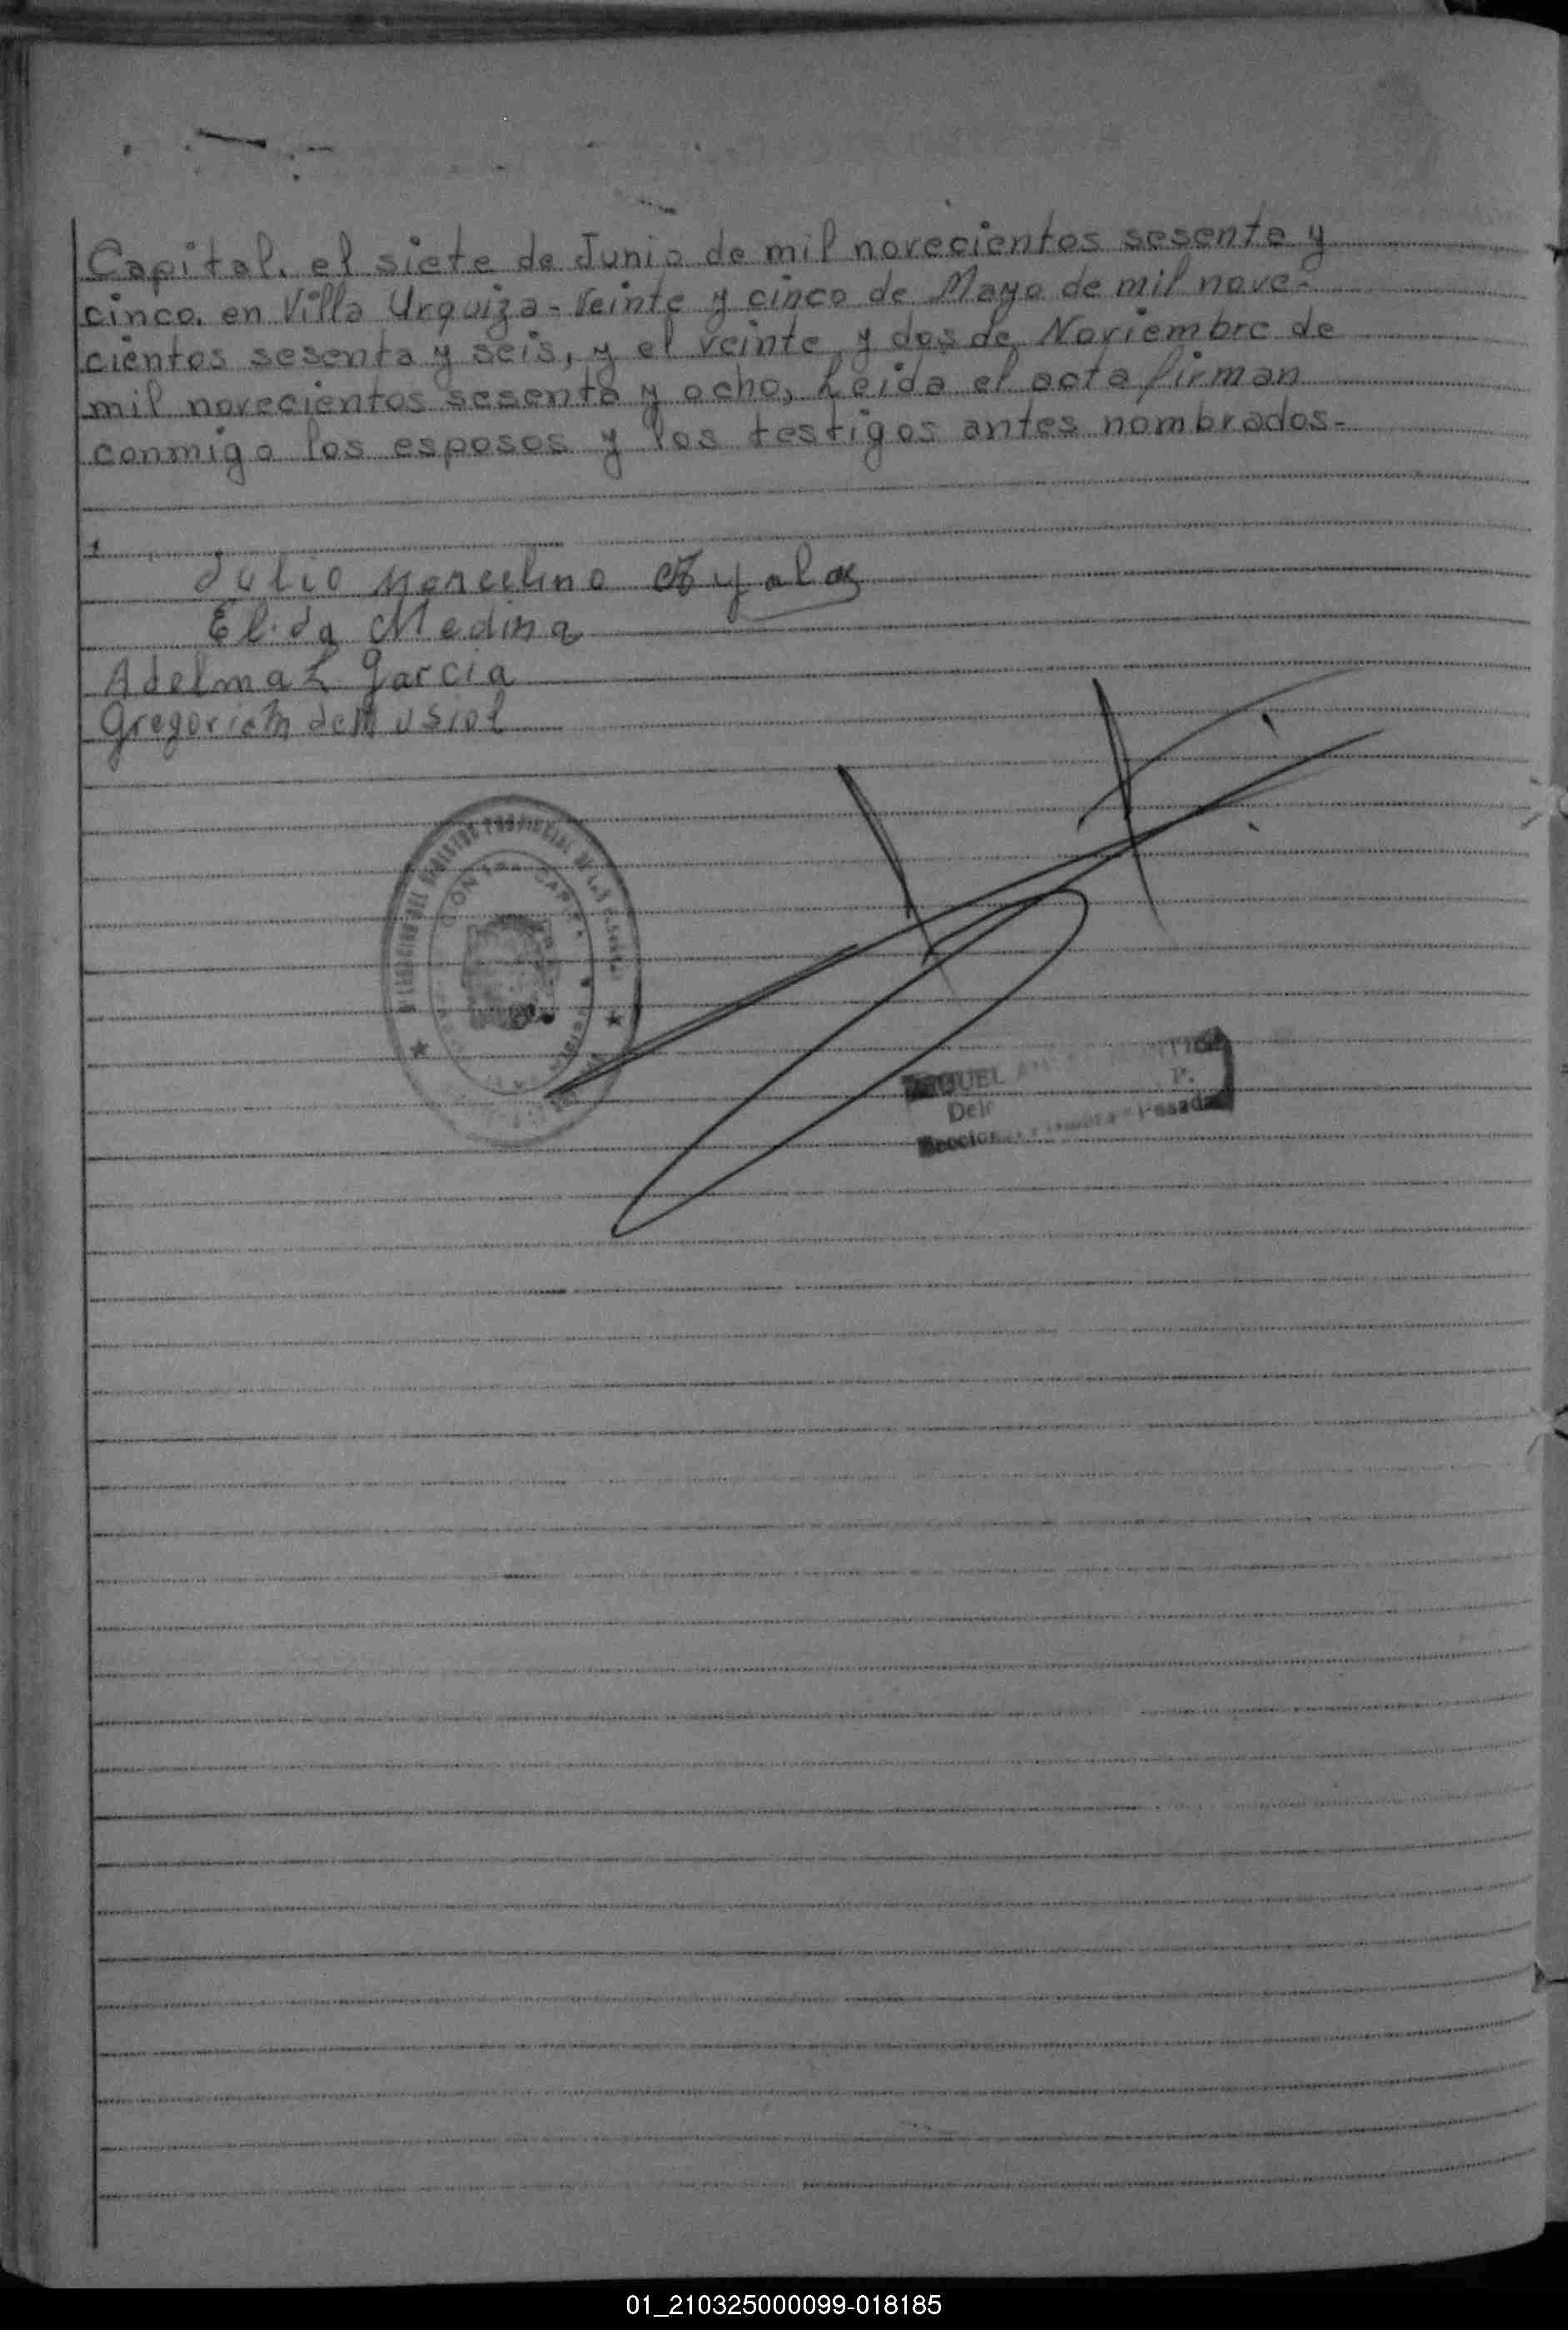 Capital. el siete de Junio de mil novecientos sesenta y
cinco. en Villa Urquiza - Veinte y cinco de Mayo de mil nove-
cientos sesenta y seis, y el veinte y dos de Noviembre de
mil novecientos sesenta y ocho, Leida el acta firman
conmigo los esposos y los testigos antes nombrados.-
Julio Marcelino Ayala
Elida Medina
Adelma L Garcia
Gregoria M de Musiol
DIRECCION DEL REGISTRO PROVINCIAL DE LAS
CAPITAL
01_210325000099-018185